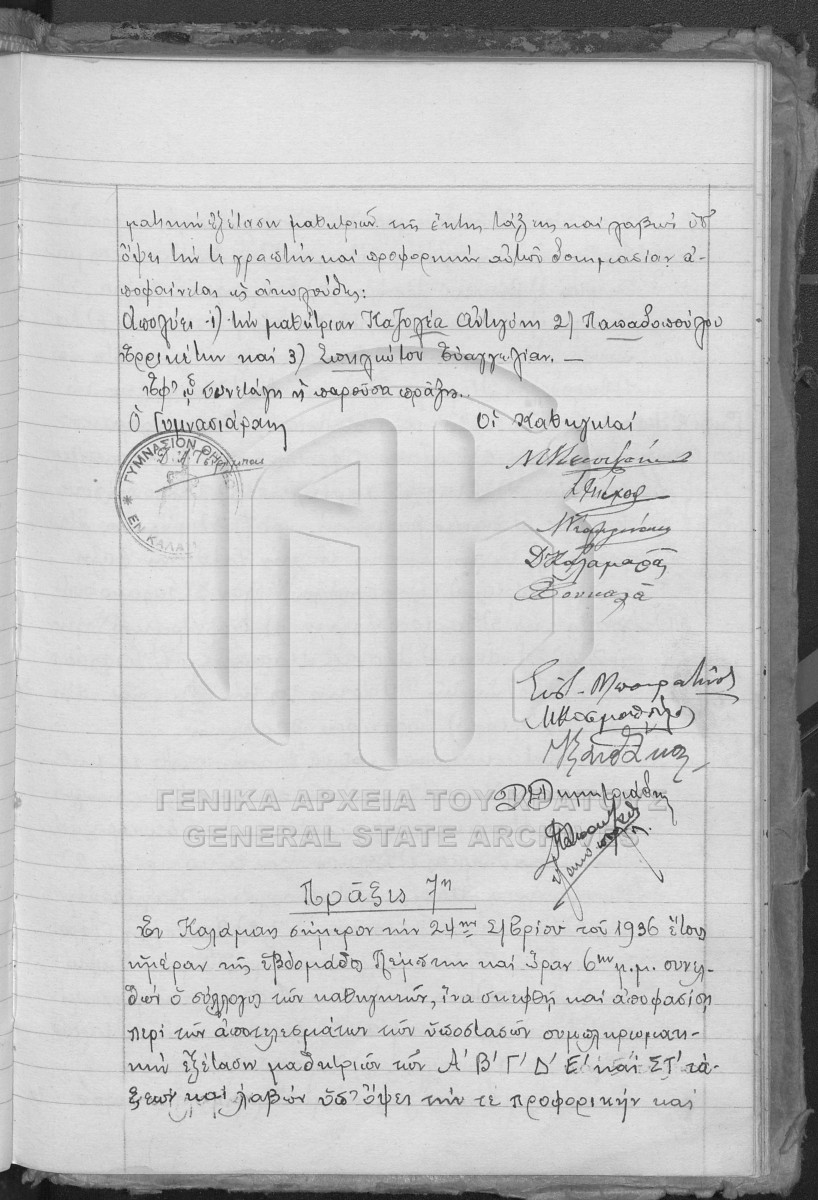 ματικὴν ἐξέτασιν μαθητριῶν τῆς ἕκτης τάξεως καὶ λαβὼν ὑπ'
ὄψει τήν τε γραπτὴν καὶ προφορικὴν αὐτῶν δοκιμασίαν ἀ-
ποφαίνεται ὡς ἀκολούθως:
Ἀπολύει 1) τὴν μαθήτριαν Καζολέα Ἀντιγόνη 2) Παπαδοπούλου
Ἑρριέττην καὶ 3) Σπηλιώτου Εὐαγγελίαν. —
Ἐφ' ᾧ συνετάγη ἡ παροῦσα πρᾶξις.
Ὁ Γυμνασιάρχης
Οἱ Καθηγηταί
ΓΥΜΝΑΣΙΟΝ ΘΗΛΕΩΝ
ΕΝ ΚΑΛΑΜ
Δ Καλαμαρᾶς
Μ Κοσμόπουλος
Δ Δημητριάδης
ΓΕΝΙΚΑ ΑΡΧΕΙΑ ΤΟΥ ΚΡΑΤΟΥΣ
GENERAL STATE ARCHIVES
Πρᾶξις 7η
Ἐν Καλάμαις σήμερον τὴν 24ην 7/βρίου τοῦ 1936 ἔτους
ἡμέραν τῆς ἑβδομάδος Πέμπτην καὶ ὥραν 6ην μ.μ. συνελ-
θὼν ὁ σύλλογος τῶν καθηγητῶν, ἵνα σκεφθῇ καὶ ἀποφασίσῃ
περὶ τῶν ἀποτελεσμάτων τῶν ὑποστασῶν συμπληρωματι-
κὴν ἐξέτασιν μαθητριῶν τῶν Α' Β' Γ' Δ' Ε' καὶ ΣΤ' τά-
ξεων καὶ λαβὼν ὑπ' ὄψει τήν τε προφορικὴν καὶ